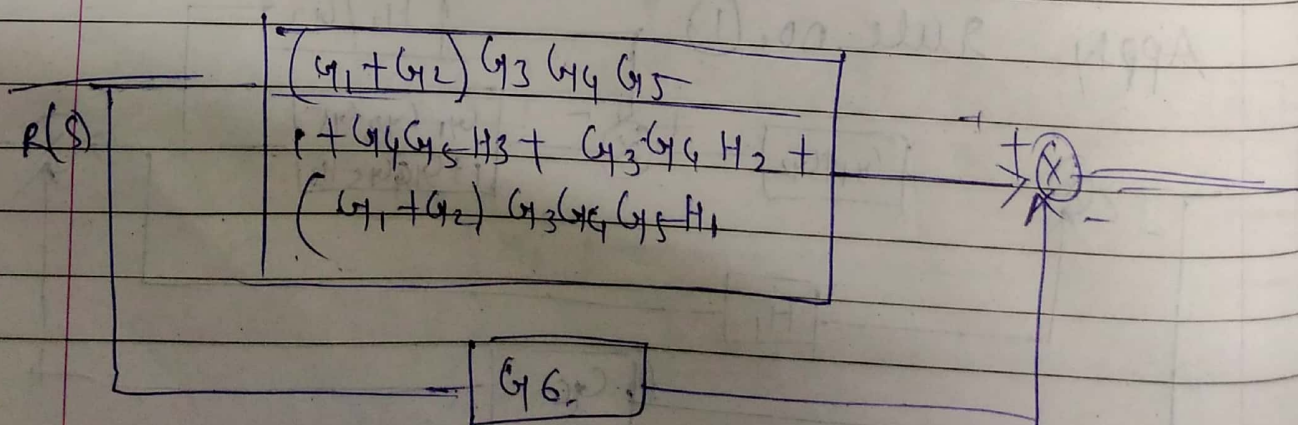 (G1+G2) G3 G4 G5
R(S)
1+G4G5H3+ G3G4 H2 +
(G1+G2) G3G4 G5H1
+
-
G6